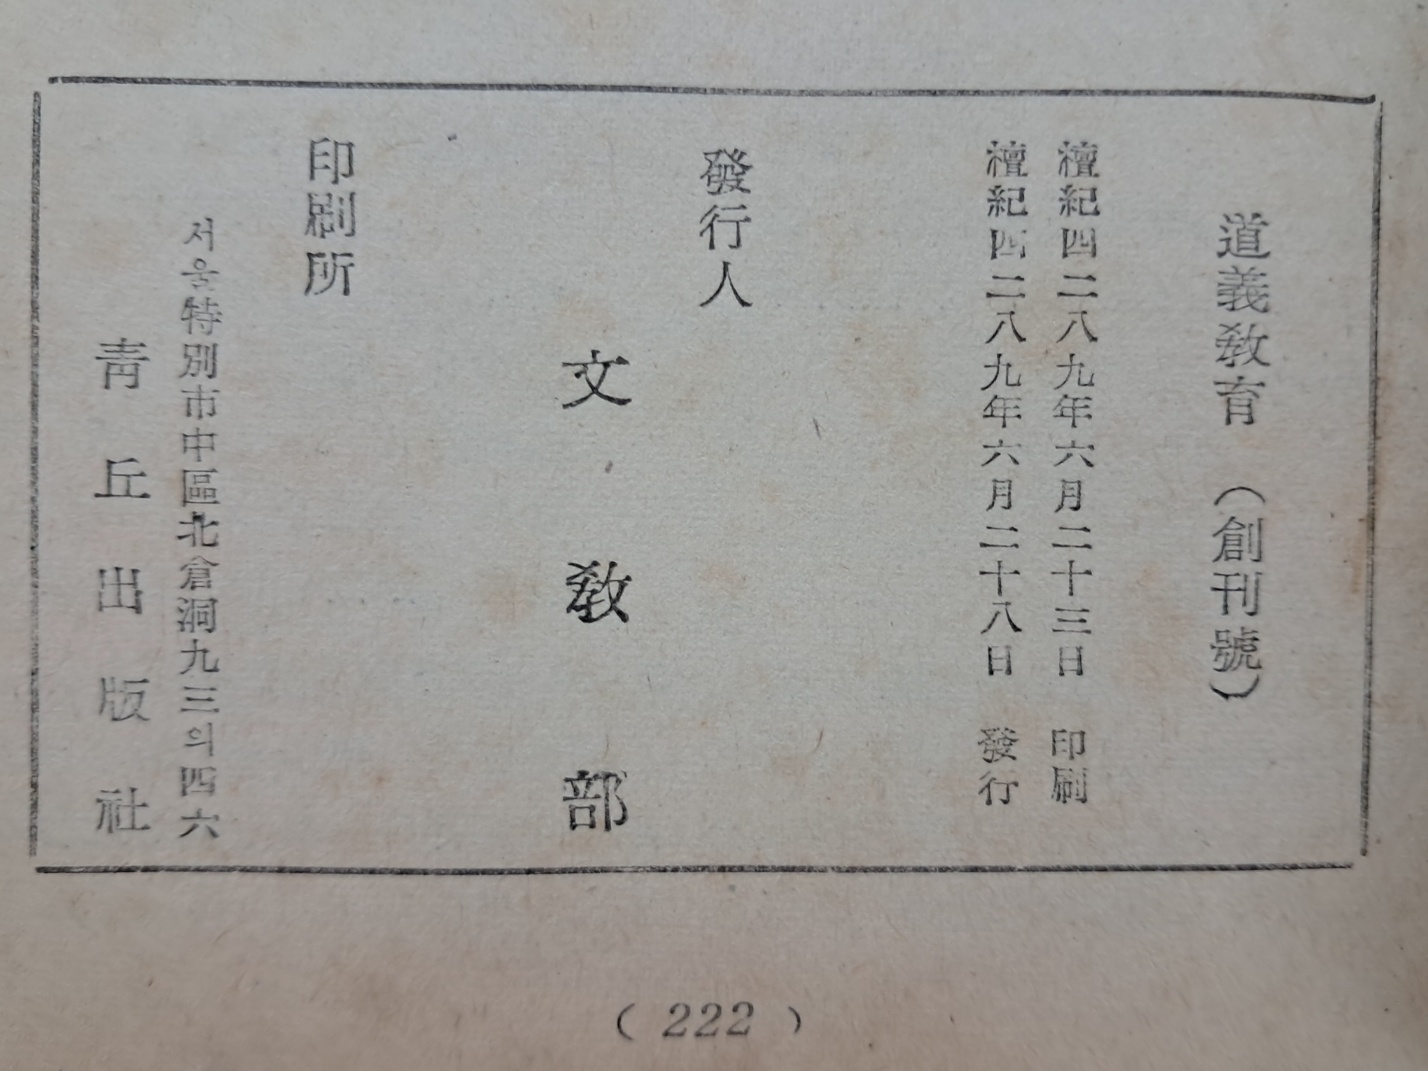 道義敎育 (創刊號)
檀紀四二八九年六月二十三日 印刷
檀紀四二八九年六月二十八日 發行
發行人
文敎部
印刷所
서울特別市中區北倉洞九三의四六
靑丘出版社
( 222 )